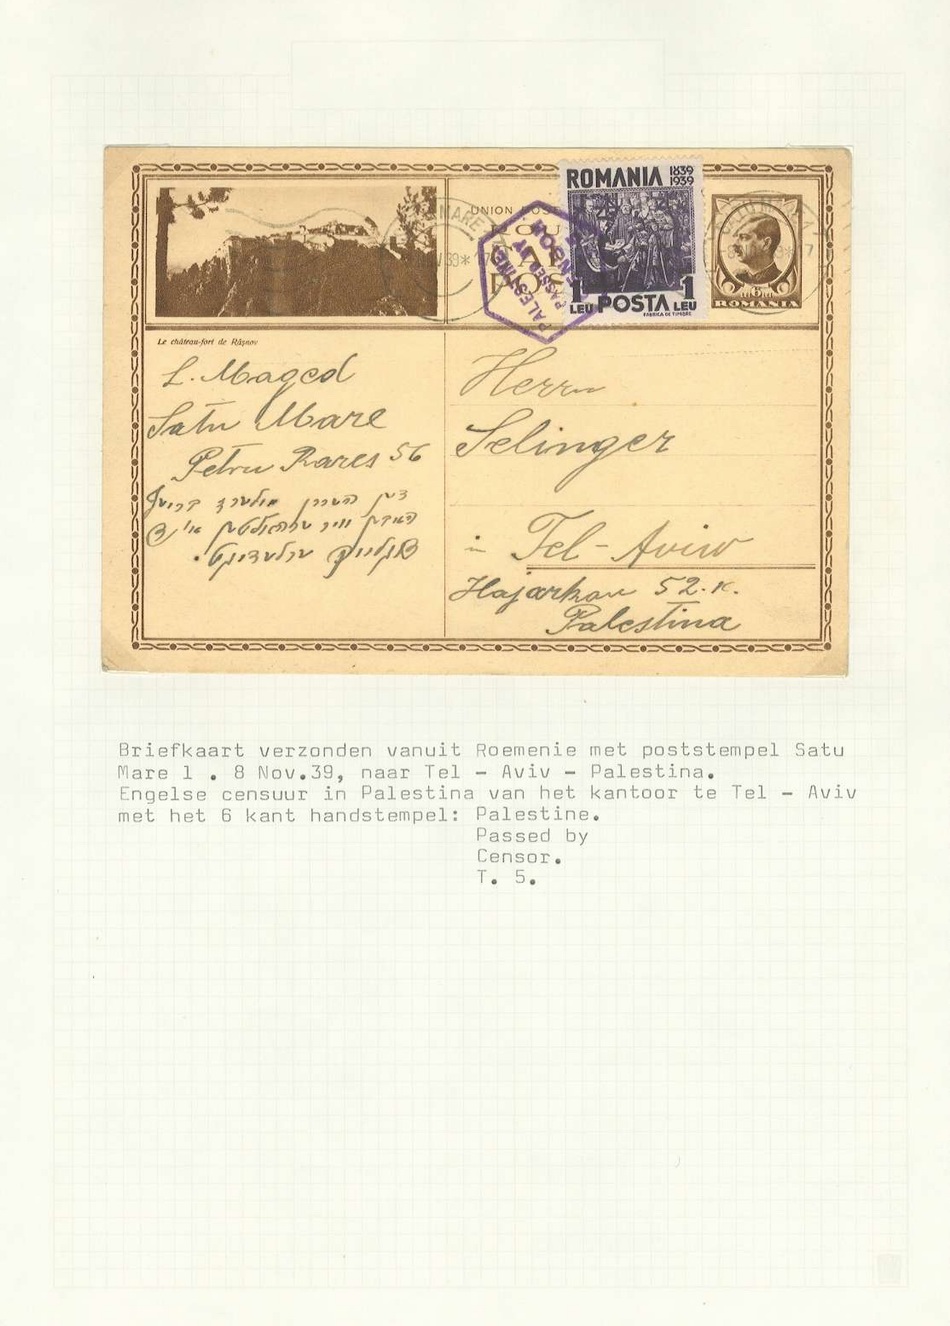 ROMANIA 1839
1939
1 POSTA 1
LEU LEU
FABRICA DE TIMBRE
UNION
PALESTINE
PASSED BY
CENSOR
MARE
6
ROMANIA
Le château-fort de Râșnov
L. Maged
Satu Mare
Petru Rares 56
Herrn
Selinger
in Tel-Aviv
Hajarkon 52.
Palestina
Briefkaart verzonden vanuit Roemenie met poststempel Satu
Mare 1 . 8 Nov.39, naar Tel - Aviv - Palestina.
Engelse censuur in Palestina van het kantoor te Tel - Aviv
met het 6 kant handstempel: Palestine.
Passed by
Censor.
T. 5.